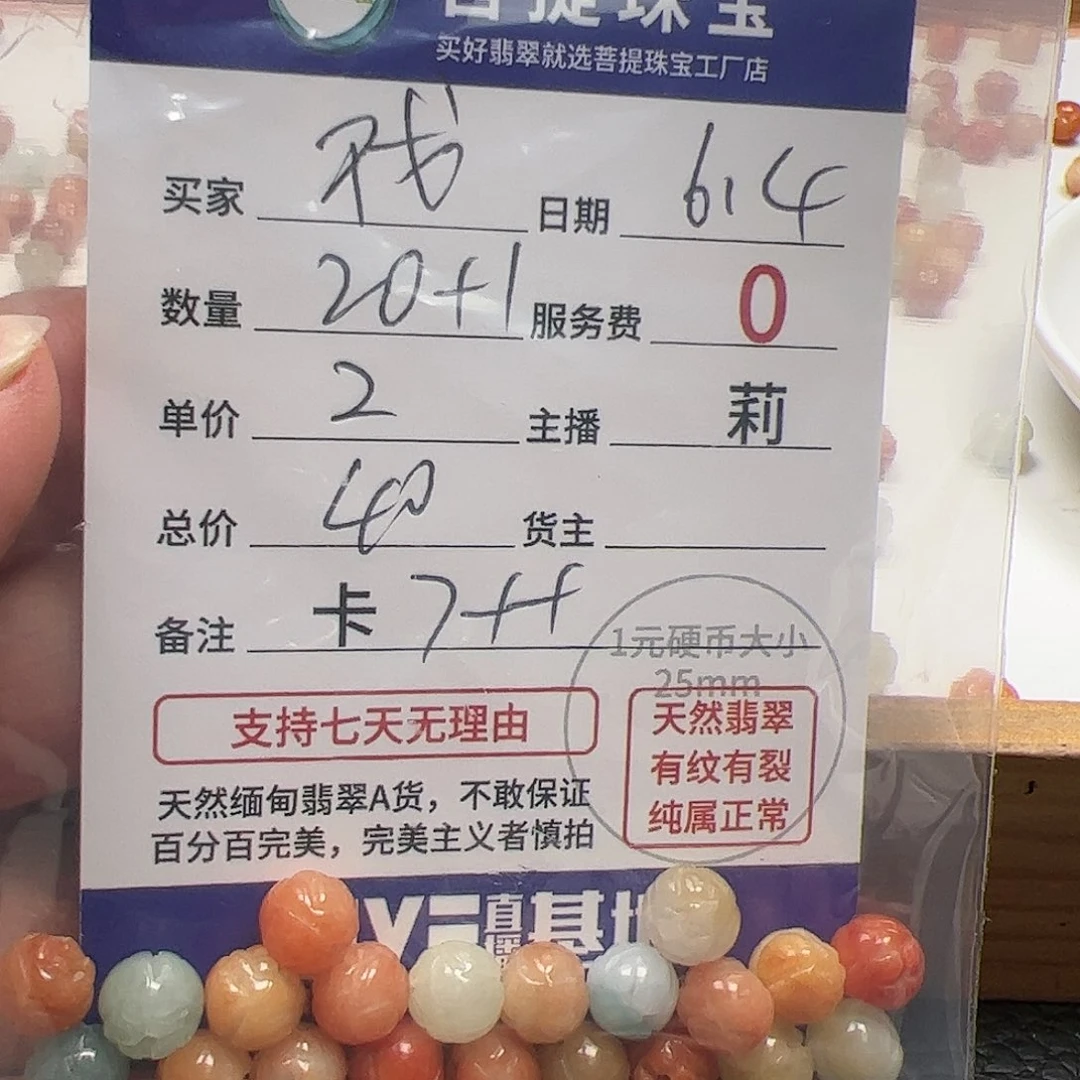 菩提珠宝
买好翡翠就选菩提珠宝工厂店
买家 日期 6.14
数量 20+1 服务费 0
单价 2 主播 莉
总价 40 货主
备注 卡 7++
1元硬币大小
25mm
支持七天无理由
天然翡翠
有纹有裂
纯属正常
天然缅甸翡翠A货，不敢保证
百分百完美，完美主义者慎拍
直播基地